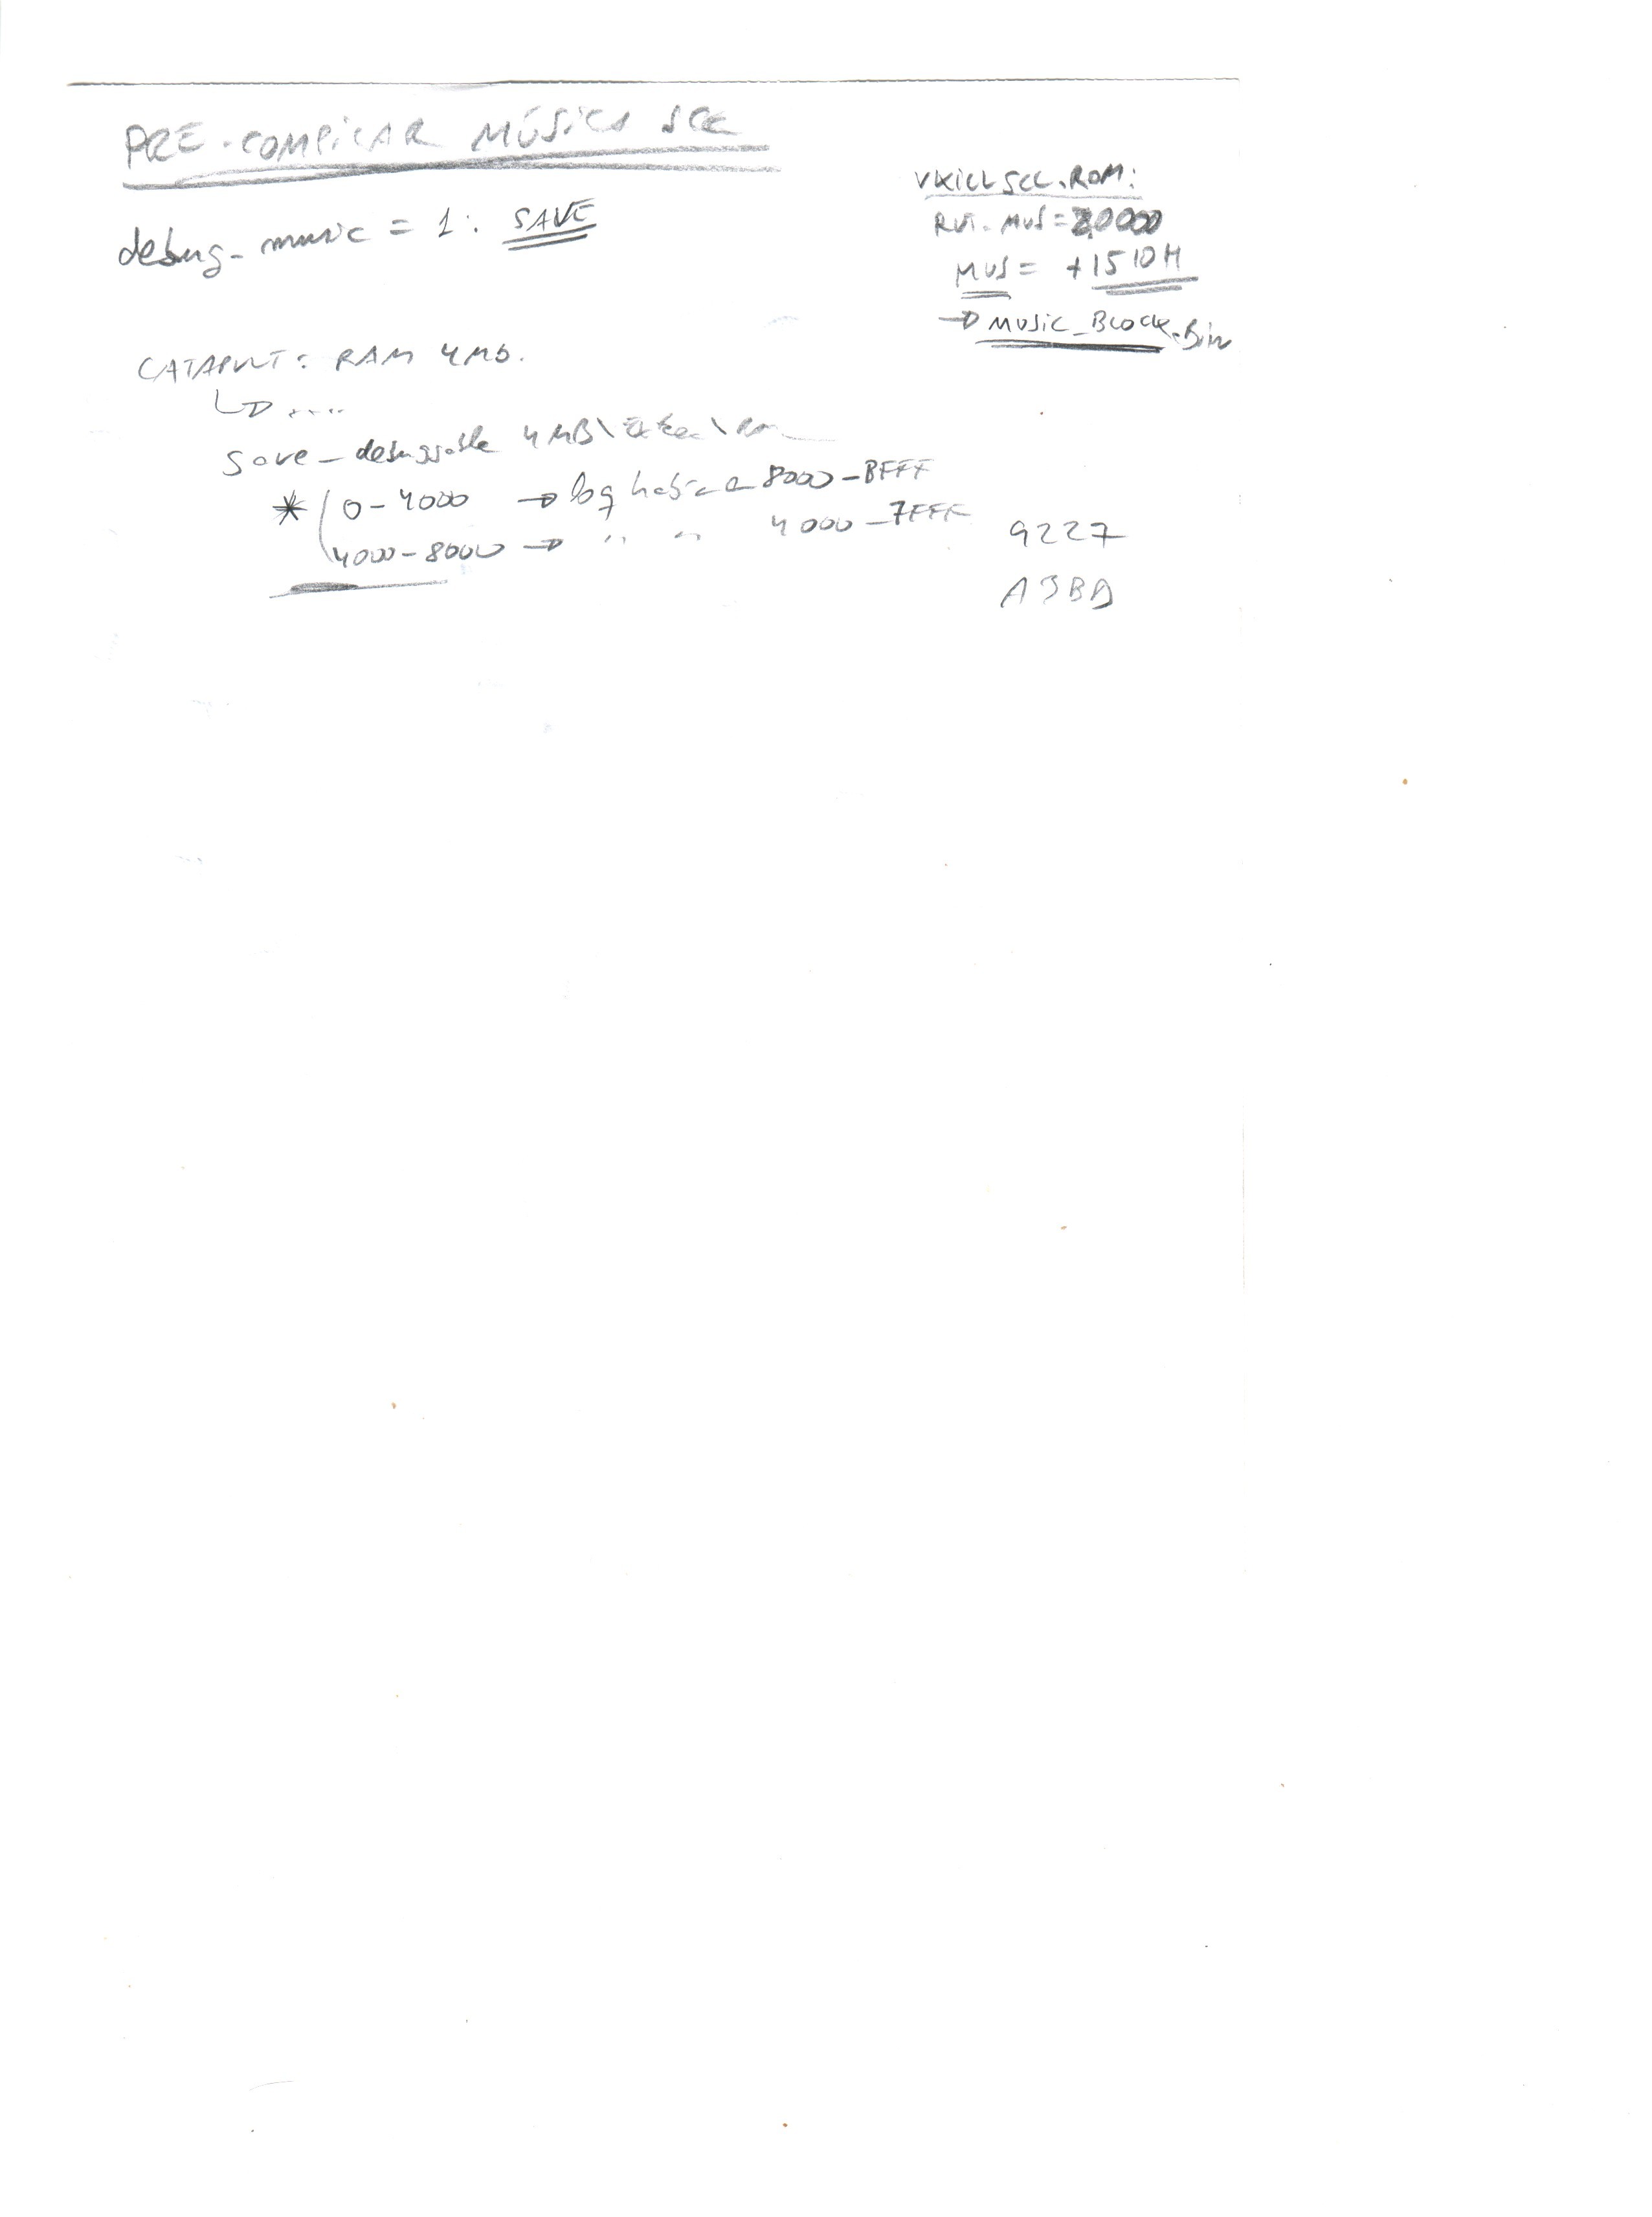 PRE-COMPILAR MÚSICA SCC
debug_music = 1: SAVE
VKILLSCC.ROM:
RUT. MUS = 20000
MUS = +1510H
→ MUSIC_BLOCK.Bin
CATAPULT: RAM 4MB.
↳ ....
save_debuggable 4MB\
* 0-4000 → log había a 8000-BFFF
4000-8000 → " " 4000-7FFF
9227
A3BA